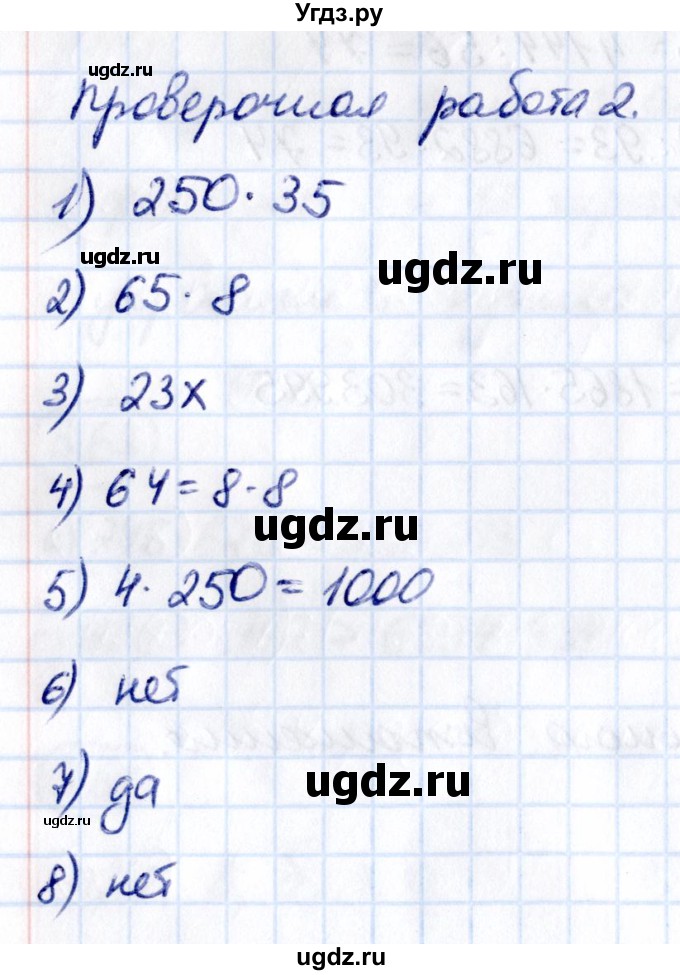 Угдз.ру
ugdz.ru
Проверочная работа 2.
1) 250 · 35
ugdz.ru
ugdz.ru
2) 65 · 8
3) 23x
4) 64 = 8 · 8
ugdz.ru
5) 4 · 250 = 1000
6) нет
7) да
ugdz.ru
ugdz.ru
8) нет
ugdz.ru